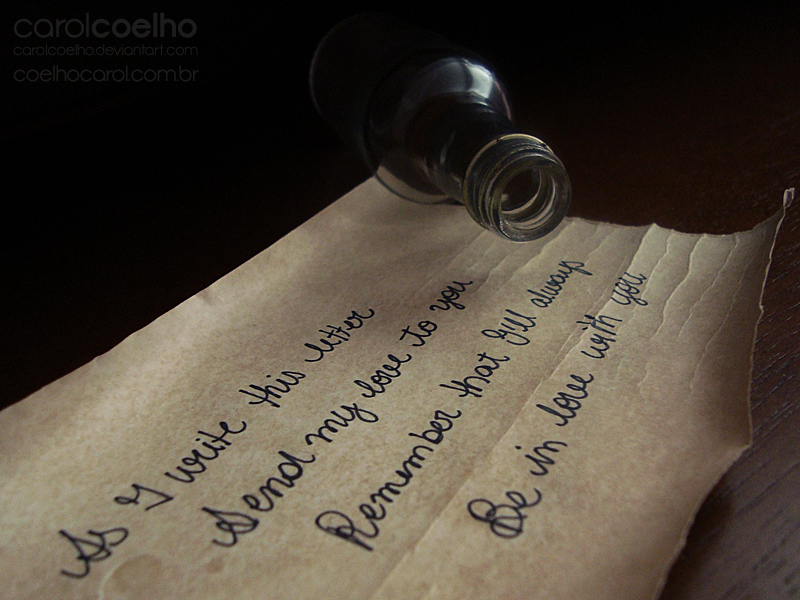 carolcoelho
carolcoelho.deviantart.com
coelhocarol.com.br
As I write this letter
Send my love to you
Remember that I'll always
Be in love with you